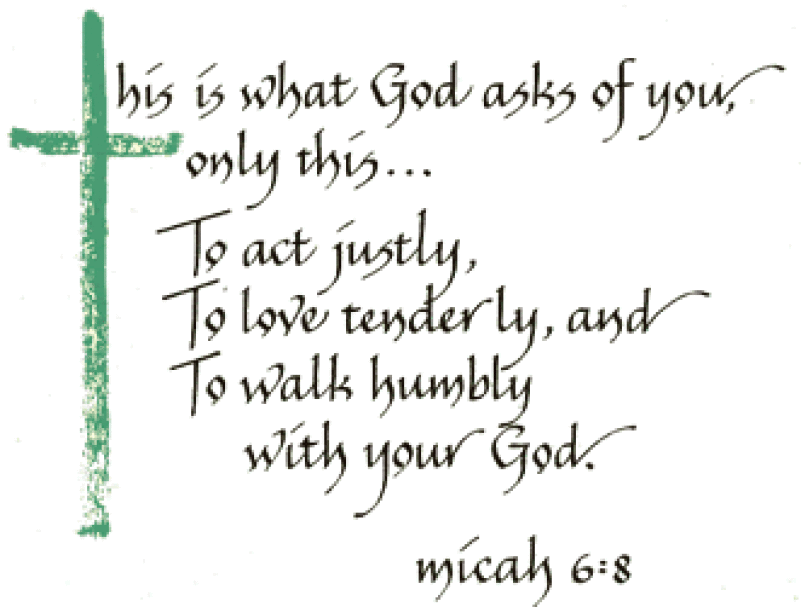 This is what God asks of you,
only this...
To act justly,
To love tenderly, and
To walk humbly
with your God.
micah 6:8